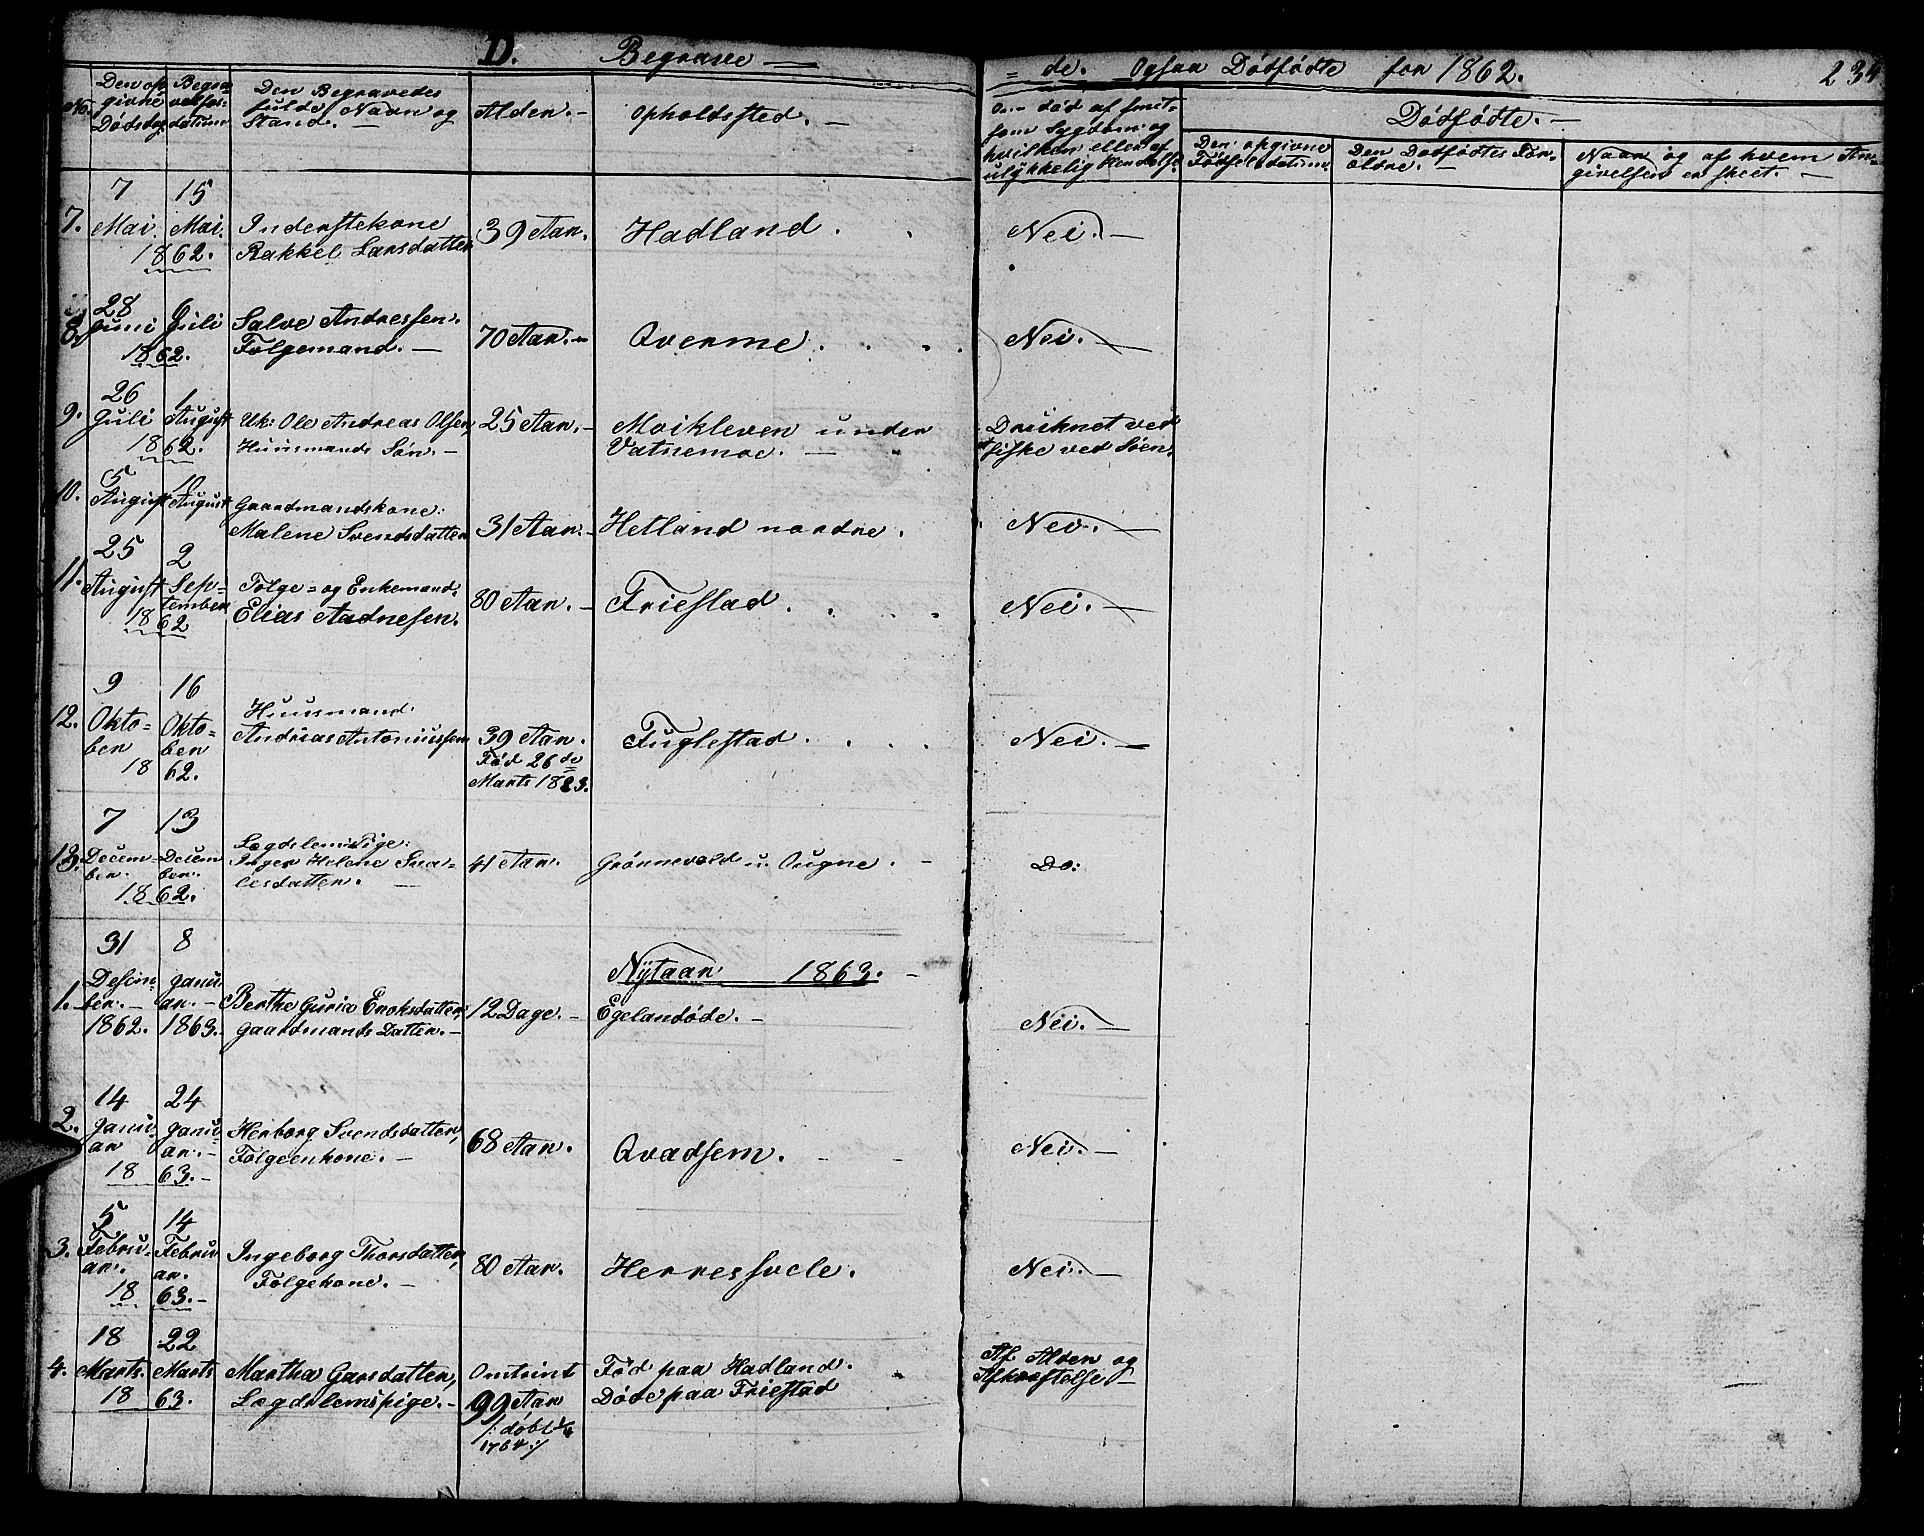 D. Begrave = de. Ogsaa Dødfødte for 1862. 234
No.
Den op
givne
Dødsdag
Begra
velses-
datum
Den Begravedes
fulde Navn og
Stand. —
Alder. —
Opholdssted. —
Om død af smit-
som Sygdom og
hvilken eller af
ulykkelig Hendelse.
Dødfødte. —
Den opgivne
Fødselsdatum.
Den Dødfødtes For-
ældre. —
Naar og af hvem An-
givelsen er skeet. —
7. 7 Mai 15 Mai.
1862.
Inderstekone
Rakkel Larsdatter
39 Aar. Hadland. Nei. —
8. 28 Juni 6 Juli
1862.
Salve Andressen.
Følgemand. —
70 Aar. — Qverme. Nei. —
9. 26 Juli 1 August
1862.
Uk: Ole Andreas Olsen,
Huusmands Søn. —
25 Aar. —
Moikleven under
Vatnemoe. —
Druknet ved
fiske ved Søen.
10. 5 August 10 August
Gaardmandskone:
Malene Svendsdatter
31 Aar. — Hetland nordre. Nei. —
11. 25 August 2 Sep-
tember
1862
Følge= og Enkemand.
Elias Aadnesen.
80 Aar. — Friestad. Nei. —
12. 9 Okto-
ber 16 Okto-
ber
1862.
Huusmand.
Andreas Antoniussen
39 Aar.
Fød 26 de
Marts 1823.
Fuglestad. Nei. —
13. 7 Decem-
ber. 13 Decem
ber.
1862.
Lægdslems Pige:
Inger Helene Sva-
lesdatter. —
41 Aar. Grønnevold u. Ougne. — Do.
Nÿtaar 1863. —
1. 31 Desem-
ber. —
1862.
8 Janu
ar. —
1863.
Berthe Guria Enoksdatter,
Gaardmands Datter. —
12 Dage. — Egelandøde. — Nei. —
2. 14 Janu-
ar 24 Janu-
ar. —
1863. —
Herborg Svendsdatter,
Følgeenkone. —
68 Aar. Qvadsem. Nei. —
3. 5 Febru-
ar. 14 Febru
ar.
1863. —
Ingeborg Thorsdatter,
Følgekone. —
80 Aar. Herresvele. Nei. —
4. 18 Marts. 22 Marts
1863.
Martha Garsdatter,
Lægdslemspige. —
Omtrint
99 Aar
/: døbt
1764 :/
Fød paa Hadland.
Døde paa Friestad
Af Alder og
Afkræftelse. —